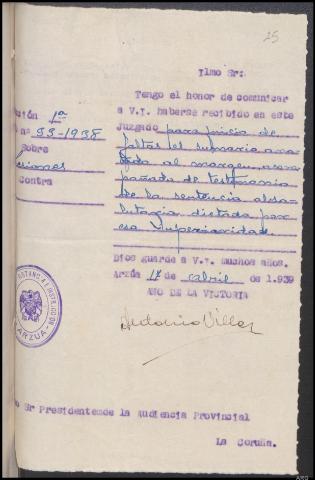 25
Ilmo Sr:
Tengo el honor de comunicar
a V.I. haberse recibido en este
Juzgado para juicio de
faltas el sumario ano
tado al margen, acom
pañado de testimonio
de la sentencia abso
lutoria dictada por
esa Superioridad.
ción 1ª
nº 55-1938
Sobre
siones
Contra
Dios guarde a V.I. muchos años.
Arzúa 17 de abril de 1.939
AÑO DE LA VICTORIA
ARZUA
o Sr Presidentede la Audiencia Provincial
La Coruña.